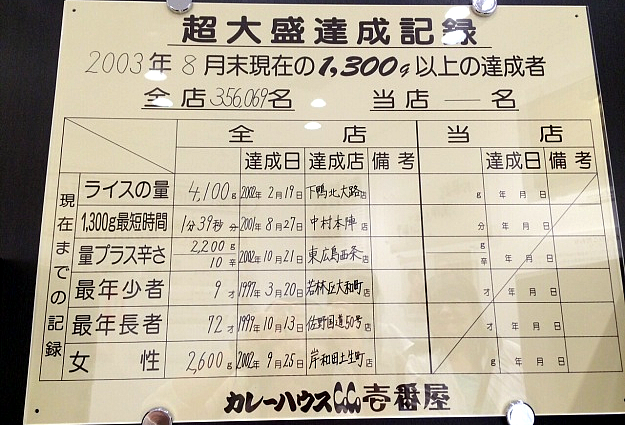 超大盛達成記録
2003年8月末現在の1,300g以上の達成者
全店356,069名 当店 — 名
全店 当店
達成日 達成店 備考 達成日 備考
現在までの記録
ライスの量 4,100g 2002年2月19日 下鴨北大路店 g 年 月 日
1,300g最短時間 1分39秒分 2001年8月27日 中村本陣店 分 年 月 日
量プラス辛さ 2,200g 10辛 2002年10月21日 東広島西条店 g 辛 年 月 日
最年少者 9才 1997年3月20日 若林区大和町店 才 年 月 日
最年長者 72才 1999年10月13日 佐野国道50号店 才 年 月 日
女性 2,600g 2002年9月25日 岸和田土生町店 g 年 月 日
カレーハウスCoCo壱番屋